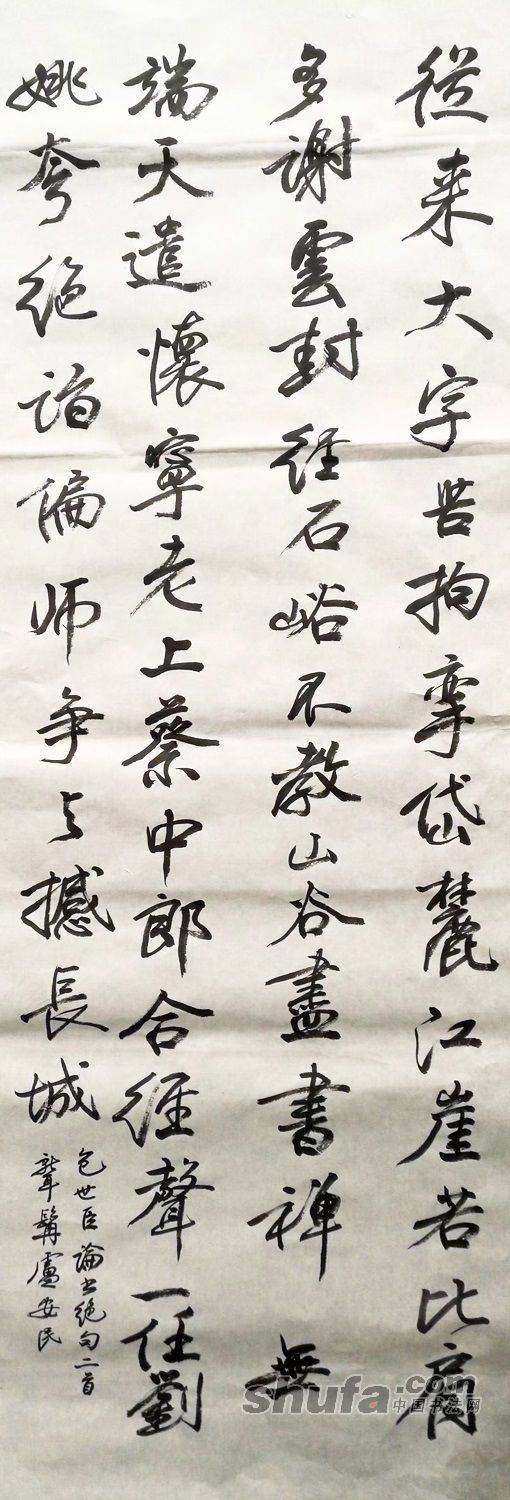 從来大字苦拘挛岱麓江崖若比肩
多謝雲封经石峪不教山谷盡書禅 無
端天遣懷寧老上蔡中郎合经聲一任劉
姚夸绝詣偏师争与撼長城
包世臣論书绝句二首
聾髯盧安民
shufa.com
中国书法网